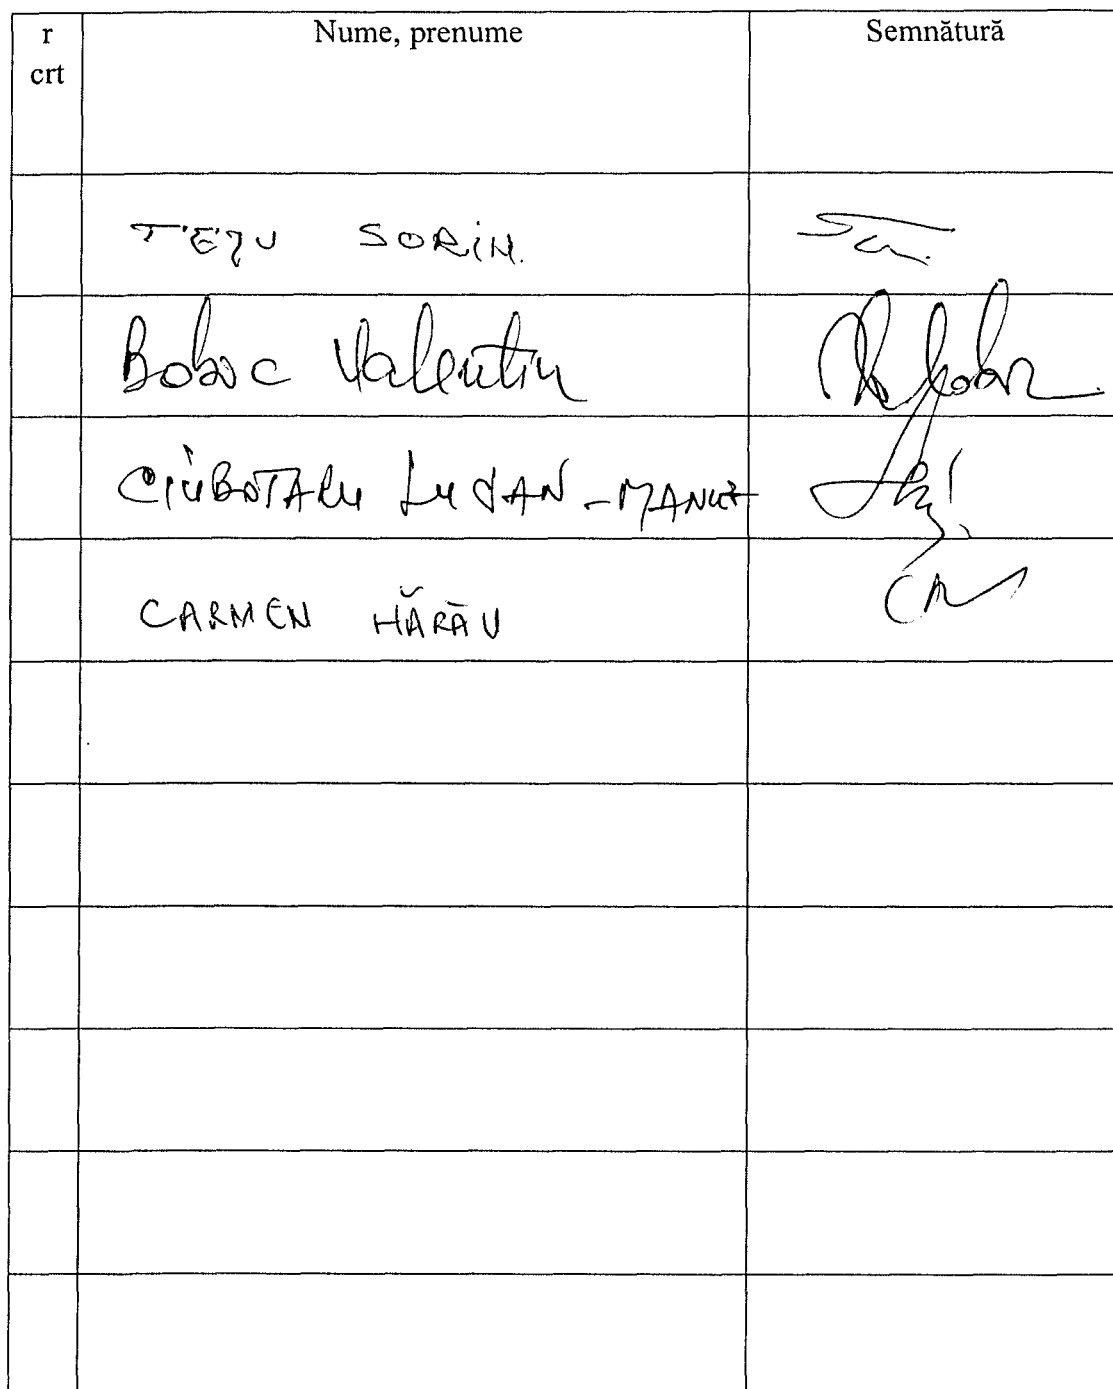 r Nume, prenume Semnătură
crt
TEȚU SORIN.
Boboc Valentin
CIUBOTARU LUCIAN-MANUEL
CARMEN HĂRĂU